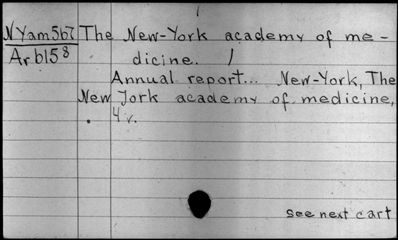 NYam567 The New-York academy of me-
Arb158 dicine.
Annual report... New-York, The
New York academy of medicine,
4 v.
see next cart